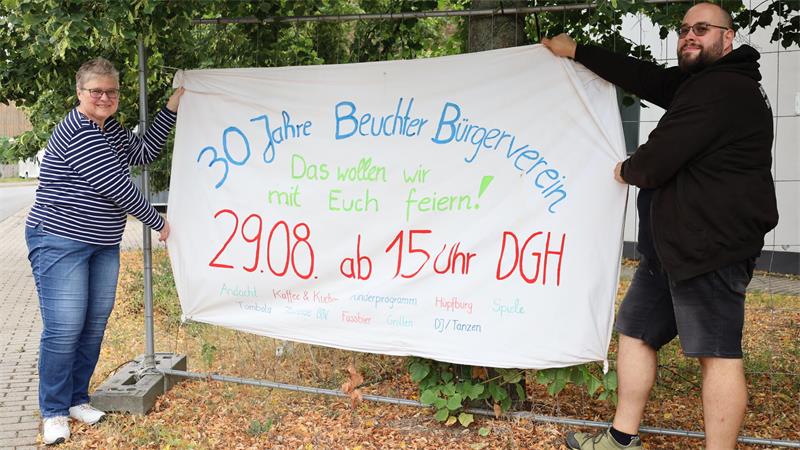 30 Jahre Beuchter Bürgerverein
Das wollen wir
mit Euch feiern!
29.08. ab 15 Uhr DGH
Andacht Kaffee & Kuchen Kinderprogramm Hüpfburg Spiele
Tombola BBV Fassbier Grillen DJ/Tanzen